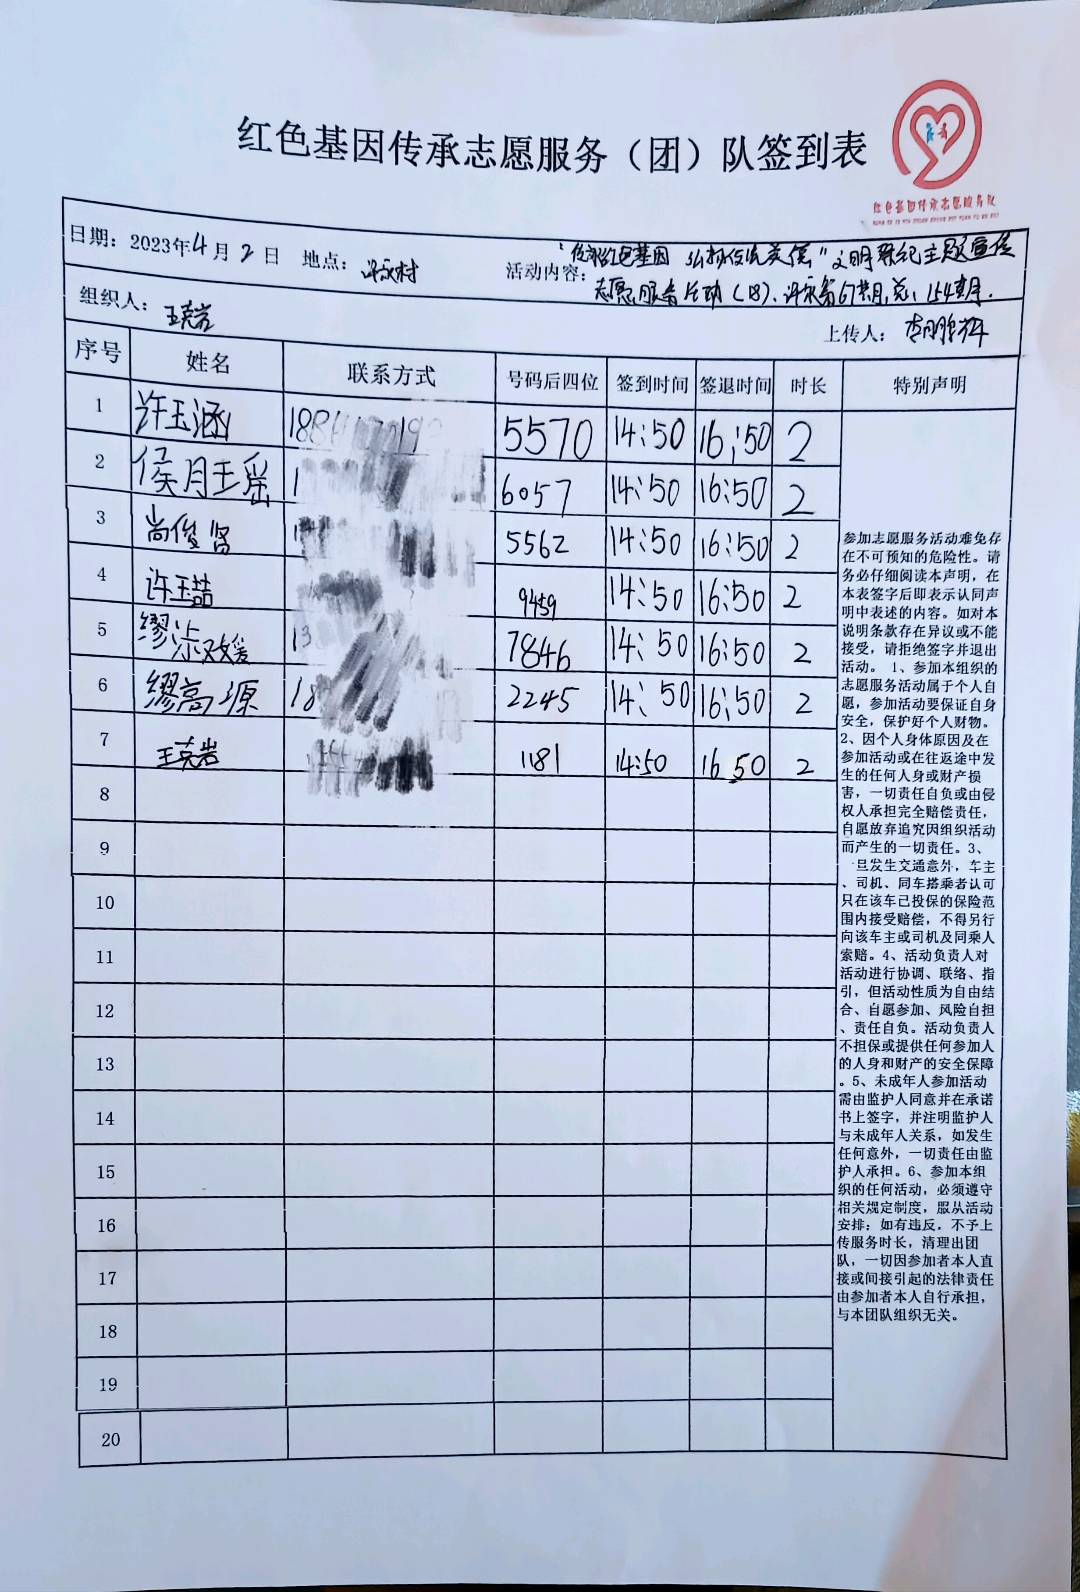 红色基因传承志愿服务（团）队签到表
红色基因传承志愿服务队
日期：2023年4月2日 地点：许家村 活动内容：“传承红色基因 弘扬传统美德”文明祭祀主题宣传
志愿服务活动（18）、许家第67其月，总、154其月．
组织人：王克岩
上传人：
序号 姓名 联系方式 号码后四位 签到时间 签退时间 时长 特别声明
1 许玉涵 5570 14:50 16:50 2
2 侯月瑶 6057 14:50 16:50 2
3 尚俊贤 5562 14:50 16:50 2
4 许玉喆 9459 14:50 16:50 2
5 缪淑媛 7846 14:50 16:50 2
6 缪高源 2245 14:50 16:50 2
7 王克岩 1181 14:50 16 50 2
8
9
10
11
12
13
14
15
16
17
18
19
20
参加志愿服务活动难免存
在不可预知的危险性。请
务必仔细阅读本声明，在
本表签字后即表示认同声
明中表述的内容。如对本
说明条款存在异议或不能
接受，请拒绝签字并退出
活动。 1、参加本组织的
志愿服务活动属于个人自
愿，参加活动要保证自身
安全，保护好个人财物。
2、因个人身体原因及在
参加活动或在往返途中发
生的任何人身或财产损
害，一切责任自负或由侵
权人承担完全赔偿责任，
自愿放弃追究因组织活动
而产生的一切责任。3、
一旦发生交通意外，车主
、司机、同车搭乘者认可
只在该车已投保的保险范
围内接受赔偿，不得另行
向该车主或司机及同乘人
索赔。4、活动负责人对
活动进行协调、联络、指
引，但活动性质为自由结
合、自愿参加、风险自担
、责任自负。活动负责人
不担保或提供任何参加人
的人身和财产的安全保障
。5、未成年人参加活动
需由监护人同意并在承诺
书上签字，并注明监护人
与未成年人关系，如发生
任何意外，一切责任由监
护人承担。6、参加本组
织的任何活动，必须遵守
相关规定制度，服从活动
安排；如有违反，不予上
传服务时长，清理出团
队，一切因参加者本人直
接或间接引起的法律责任
由参加者本人自行承担，
与本团队组织无关。